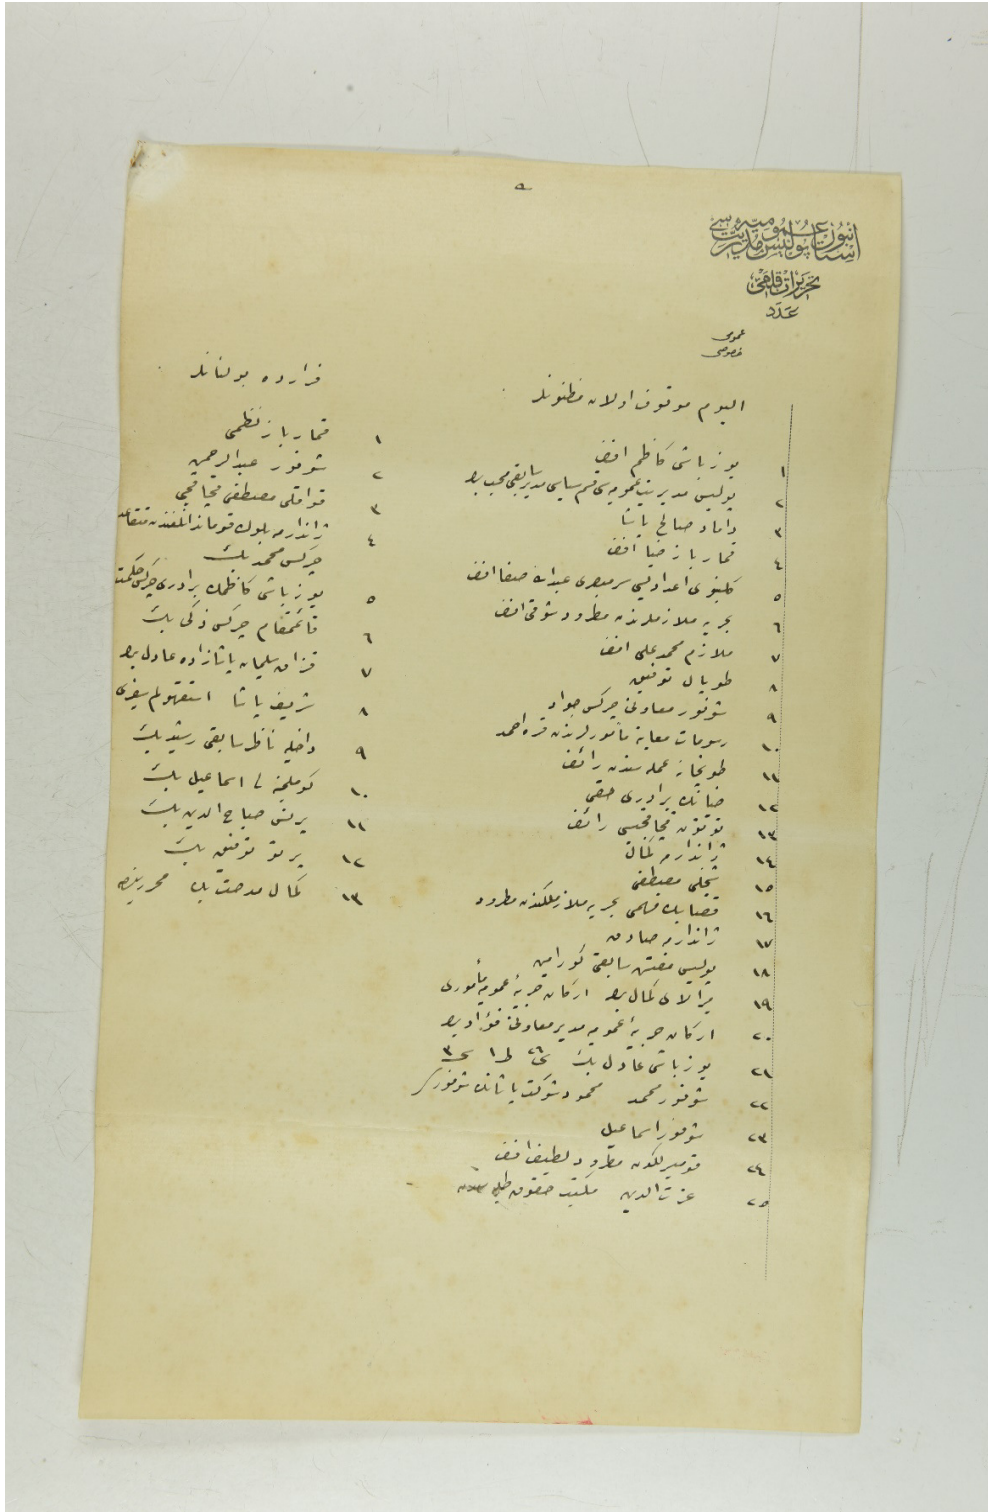 ٥
استانبول پولیس مدیریت عمومیه‌سی
تحریرات قلمی
عدد
عمومی
خصوصی
الیوم موقوف اولان مظنونلر
١ یوزباشی كاظم افندی
٢ پولیس مدیریت عمومیه‌سی قسم سیاسی مدیر سابقی محب بك
٣ داماد صالح پاشا
٤ قمارباز ضیا افندی
٥ كلنبوی اعدادیسی سرمبصری عبدالله صفا افندی
٦ بحریه ملازملرندن مطرود شوقی افندی
٧ ملازم محمد علی افندی
٨ طوپال توفیق
٩ شوفور معاونی چركس جواد
١٠ رسومات معاینه مأمورلرندن قره احمد
١١ طوپخانه عمله‌سندن رائف
١٢ ضیانك برادری حقی
١٣ توتون قچاقجیسی رائف
١٤ ژاندارمه كمال
١٥ مصطفی
١٦ قصابك فهمی بحریه ملازملكندن مطرود
١٧ ژاندارمه صادق
١٨ پولیس مفتش سابقی كور امین
١٩ میرالای كمال بك اركان حربیۀ عمومیه مأموری
٢٠ اركان حربیۀ عمومیه مدیر معاونی فؤاد بك
٢١ یوزباشی عادل بك
٢٢ شوفور محمد محمود شوكت پاشانك شوفوری
٢٣ شوفور اسماعیل
٢٤ قومیسرلكدن مطرود لطیف افندی
٢٥ عزت الدین مكتب حقوق طلبه‌سندن
فرارده بولنانلر
١ قمارباز نظمی
٢ شوفور عبدالرحمن
٣ قواقلی مصطفی قچاقجی
٤ ژاندارمه بلوك قوماندانلغندن متقاعد
چركس محمد بك
٥ یوزباشی كاظمك برادری چركس حكمت
٦ قائممقام چركس زكی بك
٧ قزان سلیمان پاشازاده عادل بك
٨ شریف پاشا استوقهولم سفیری
٩ داخلیه ناظر سابقی رشید بك
١٠ كوملجنه لی اسماعیل بك
١١ پرنس صباح الدین بك
١٢ پرتو توفیق بك
١٣ كمال مدحت بك